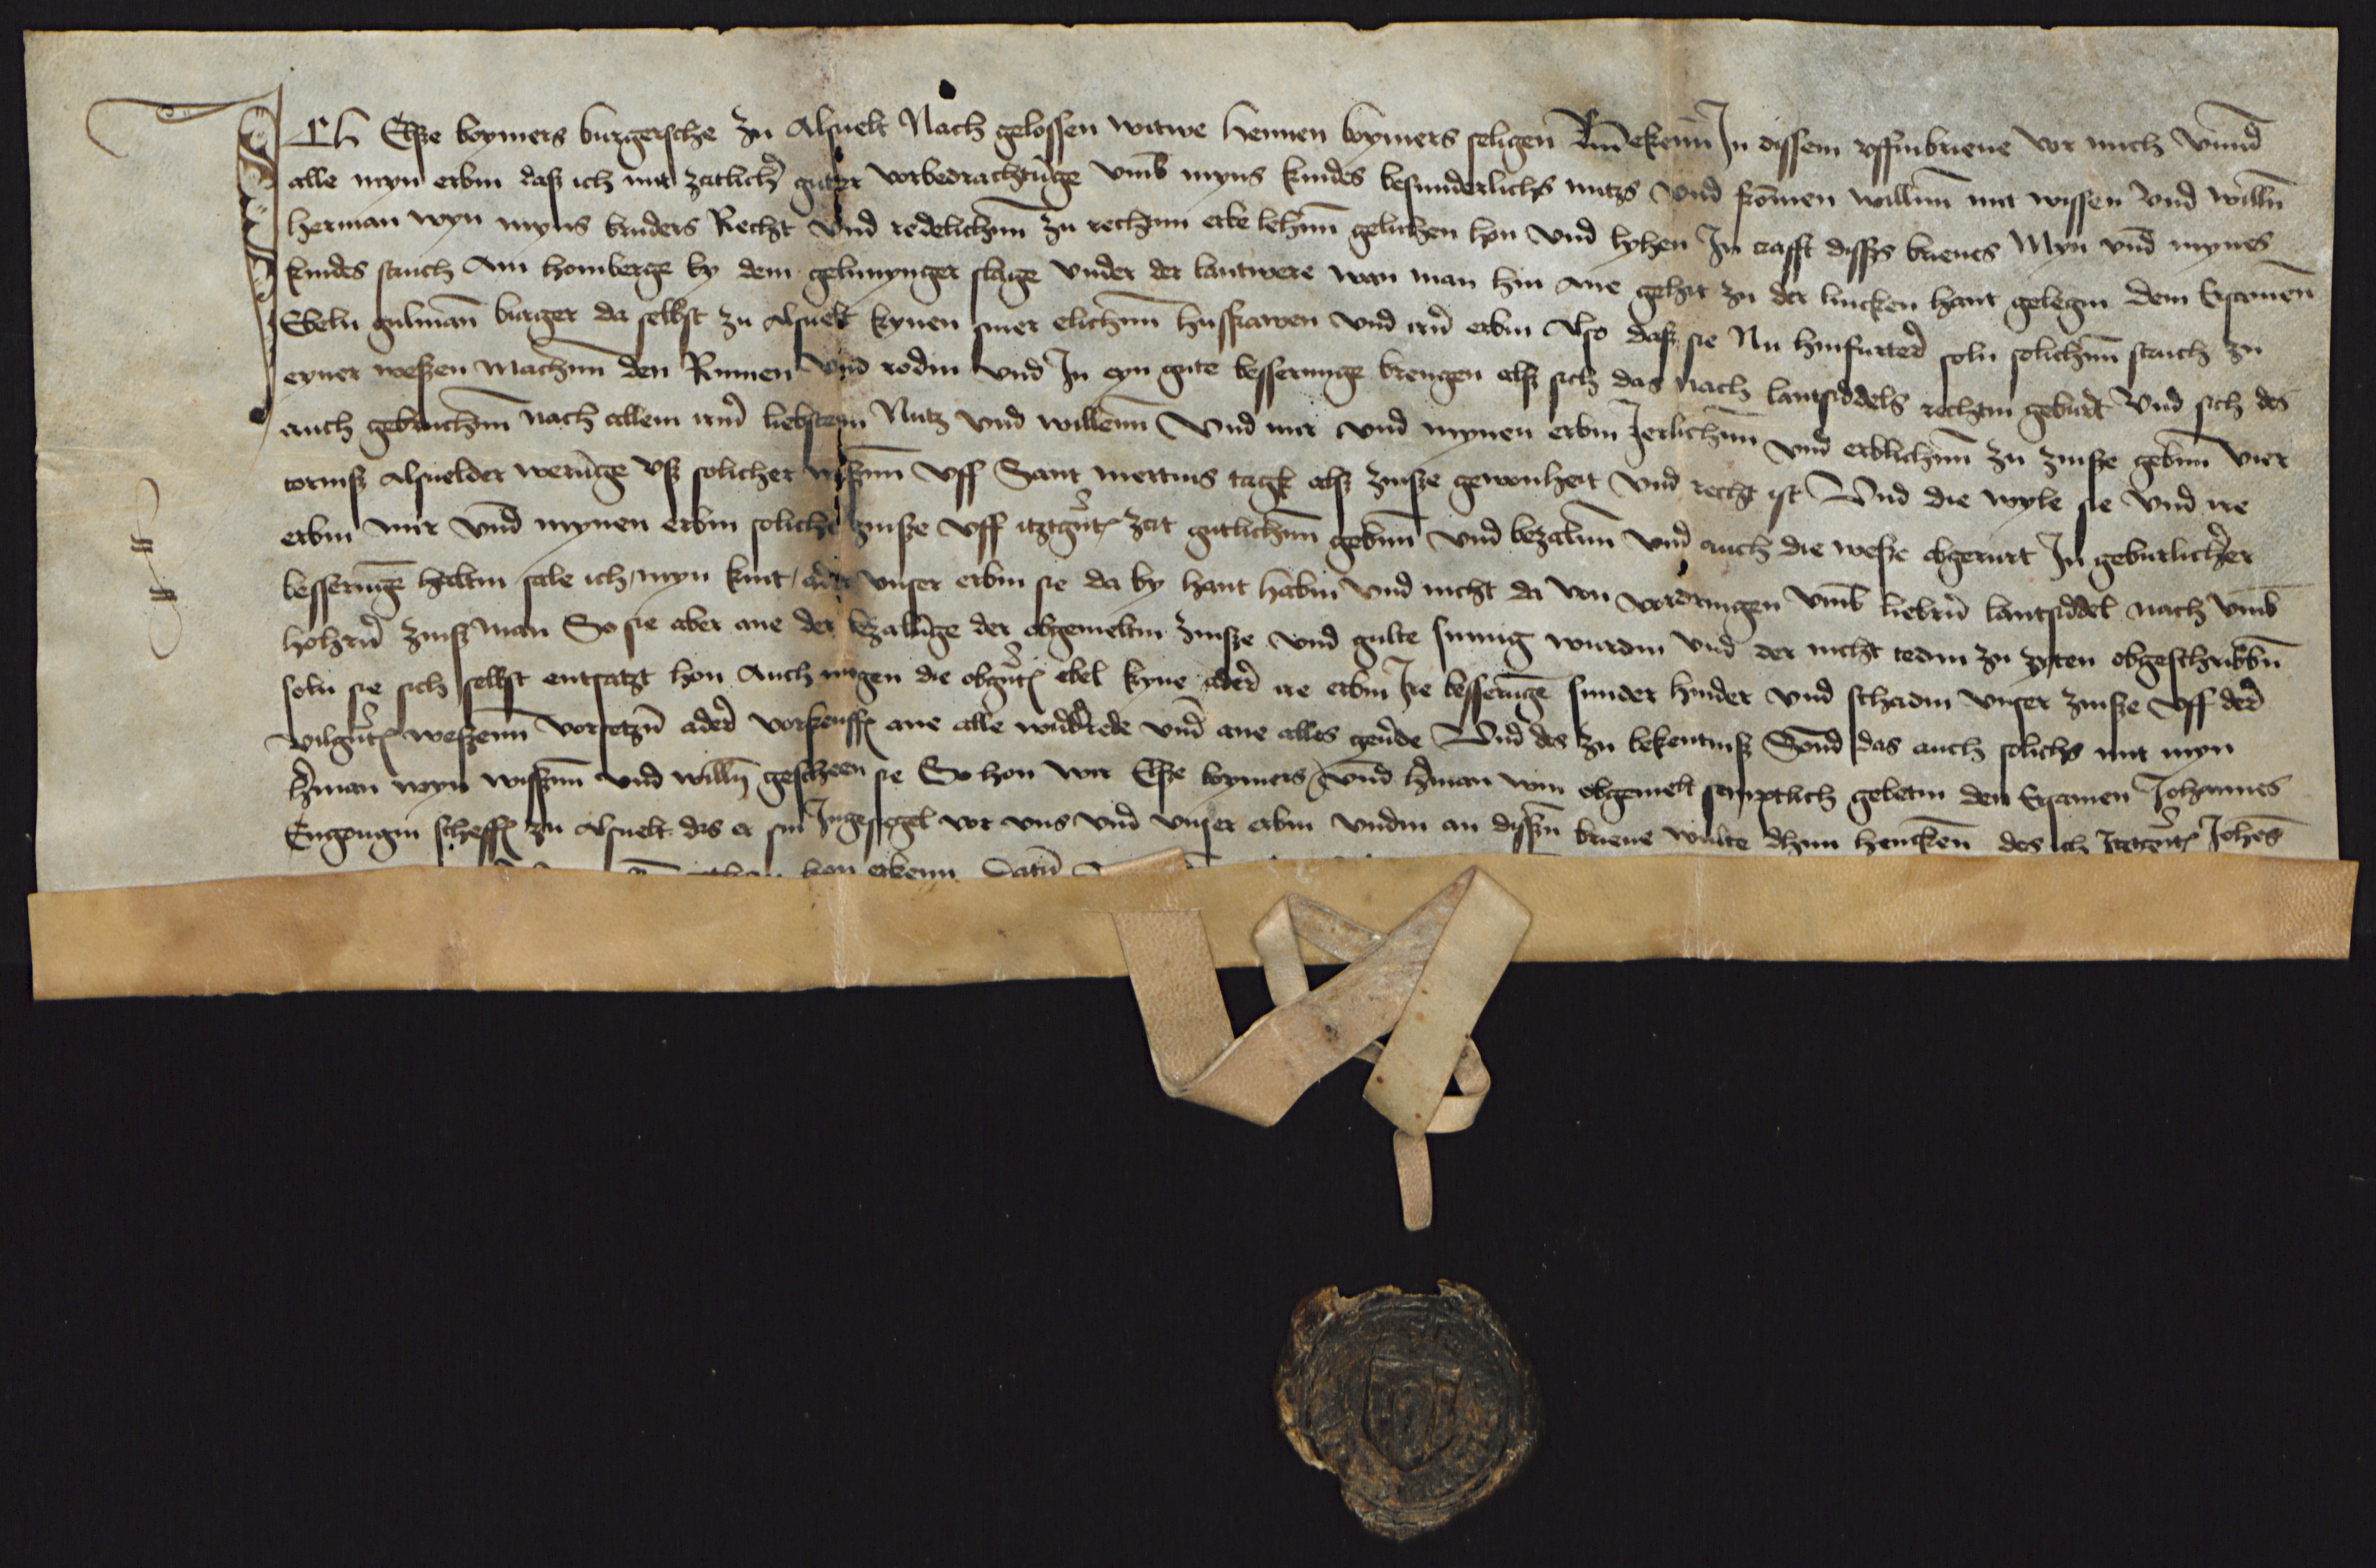 Ich Else boymers burgersche zu Alsuelt Nach gelossen witwe hennen boymers seligen Erkenn In dissem uffinbrieue vor mich vnnd
alle myn erbin das ich mit zitlichr guter vorbedrachtunge vmb myns kindes besunderlichs nutzs vnd fromen willinn mit wissen vnd willn
herman wyn myns bruders Recht vnd redelichinn zu rechtem erbe lehinn geluhen hon vnd lyhen In crafft disses brieues Myn vnd mynes
kindes struch Am homberge by dem gelmynger slage vnder der lantwere wan man hin vne gehit zu der lincken hant gelegin dem Ersamen
Ebeln gulman burger da selbst zu Alsuelt kynen siner elichinn husfrawen vnd irn erbin Also das sie Nu hinfurter soln solichinn struch zu
eyner weszen Machinn den Rumen vnd rodin vnd In eyn gute besserunge brengen als sich das nach lantsiddels rechtin geburt vnd sich des
auch gebruchinn nach allem irm liebstem Nutz vnd willenn Vnd mir vnd mynen erbin Jerlichinn vnd erblichinn zu zinsze gebinn vier
tornisz Alsuelder werunge vsz solicher wissinn vff Sant mertins tagk alsz zinsze gewonheit vnd recht ist Vnd die wyle sie vnd ire
erbin mir vnd mynen erbin soliche zinsze vff itztgnt zit gutlichinn gebinn vnd bezalinn vnd auch die wesze abgerurt In geburlicher
besserunge haltin sale ich myn kint ader vnser erbin sie da by hant habin vnd nicht da von vordringen vmb liebrn lantsiddel nach vmb
hohern zinsz man So sie aber ane der bezalunge der abgemeltin zinsze vnd gulte sumig wurdin vnd der nicht tedin zu zyten obgeschribbn
soln sie sich selbst entsatzt hon Auch mogen die obgnt ebel kyne ader ire erbin Ire besserunge sunder hinder vnd schadin vnser zinsze vff der
vilgnt weszenn vorsetzn ader vorkeuff ane alle widdrede vnd ane alles geuerde Vnd des zu bekentnisz Sond das auch solichs mit myn
hrman wyn wissinn vnd willn gescheen sie So hon wir Else boymers vnd hrman win obgemelt semptlich gebetin den Ersamen Johannes
Engougin scheff zu Alsuelt das er sin Ingesegel vor vns vnd vnser erbin vndin an dissin brieue wulte dhun hencken des ich Itztgnt Johes
hon erkenn Datu